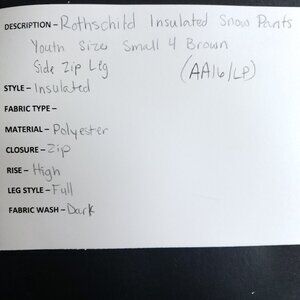 DESCRIPTION – Rothschild Insulated Snow Pants
Youth Size Small 4 Brown
Side Zip Leg (AA16/LP)
STYLE – Insulated
FABRIC TYPE –
MATERIAL – Polyester
CLOSURE – Zip
RISE – High
LEG STYLE – Full
FABRIC WASH – Dark